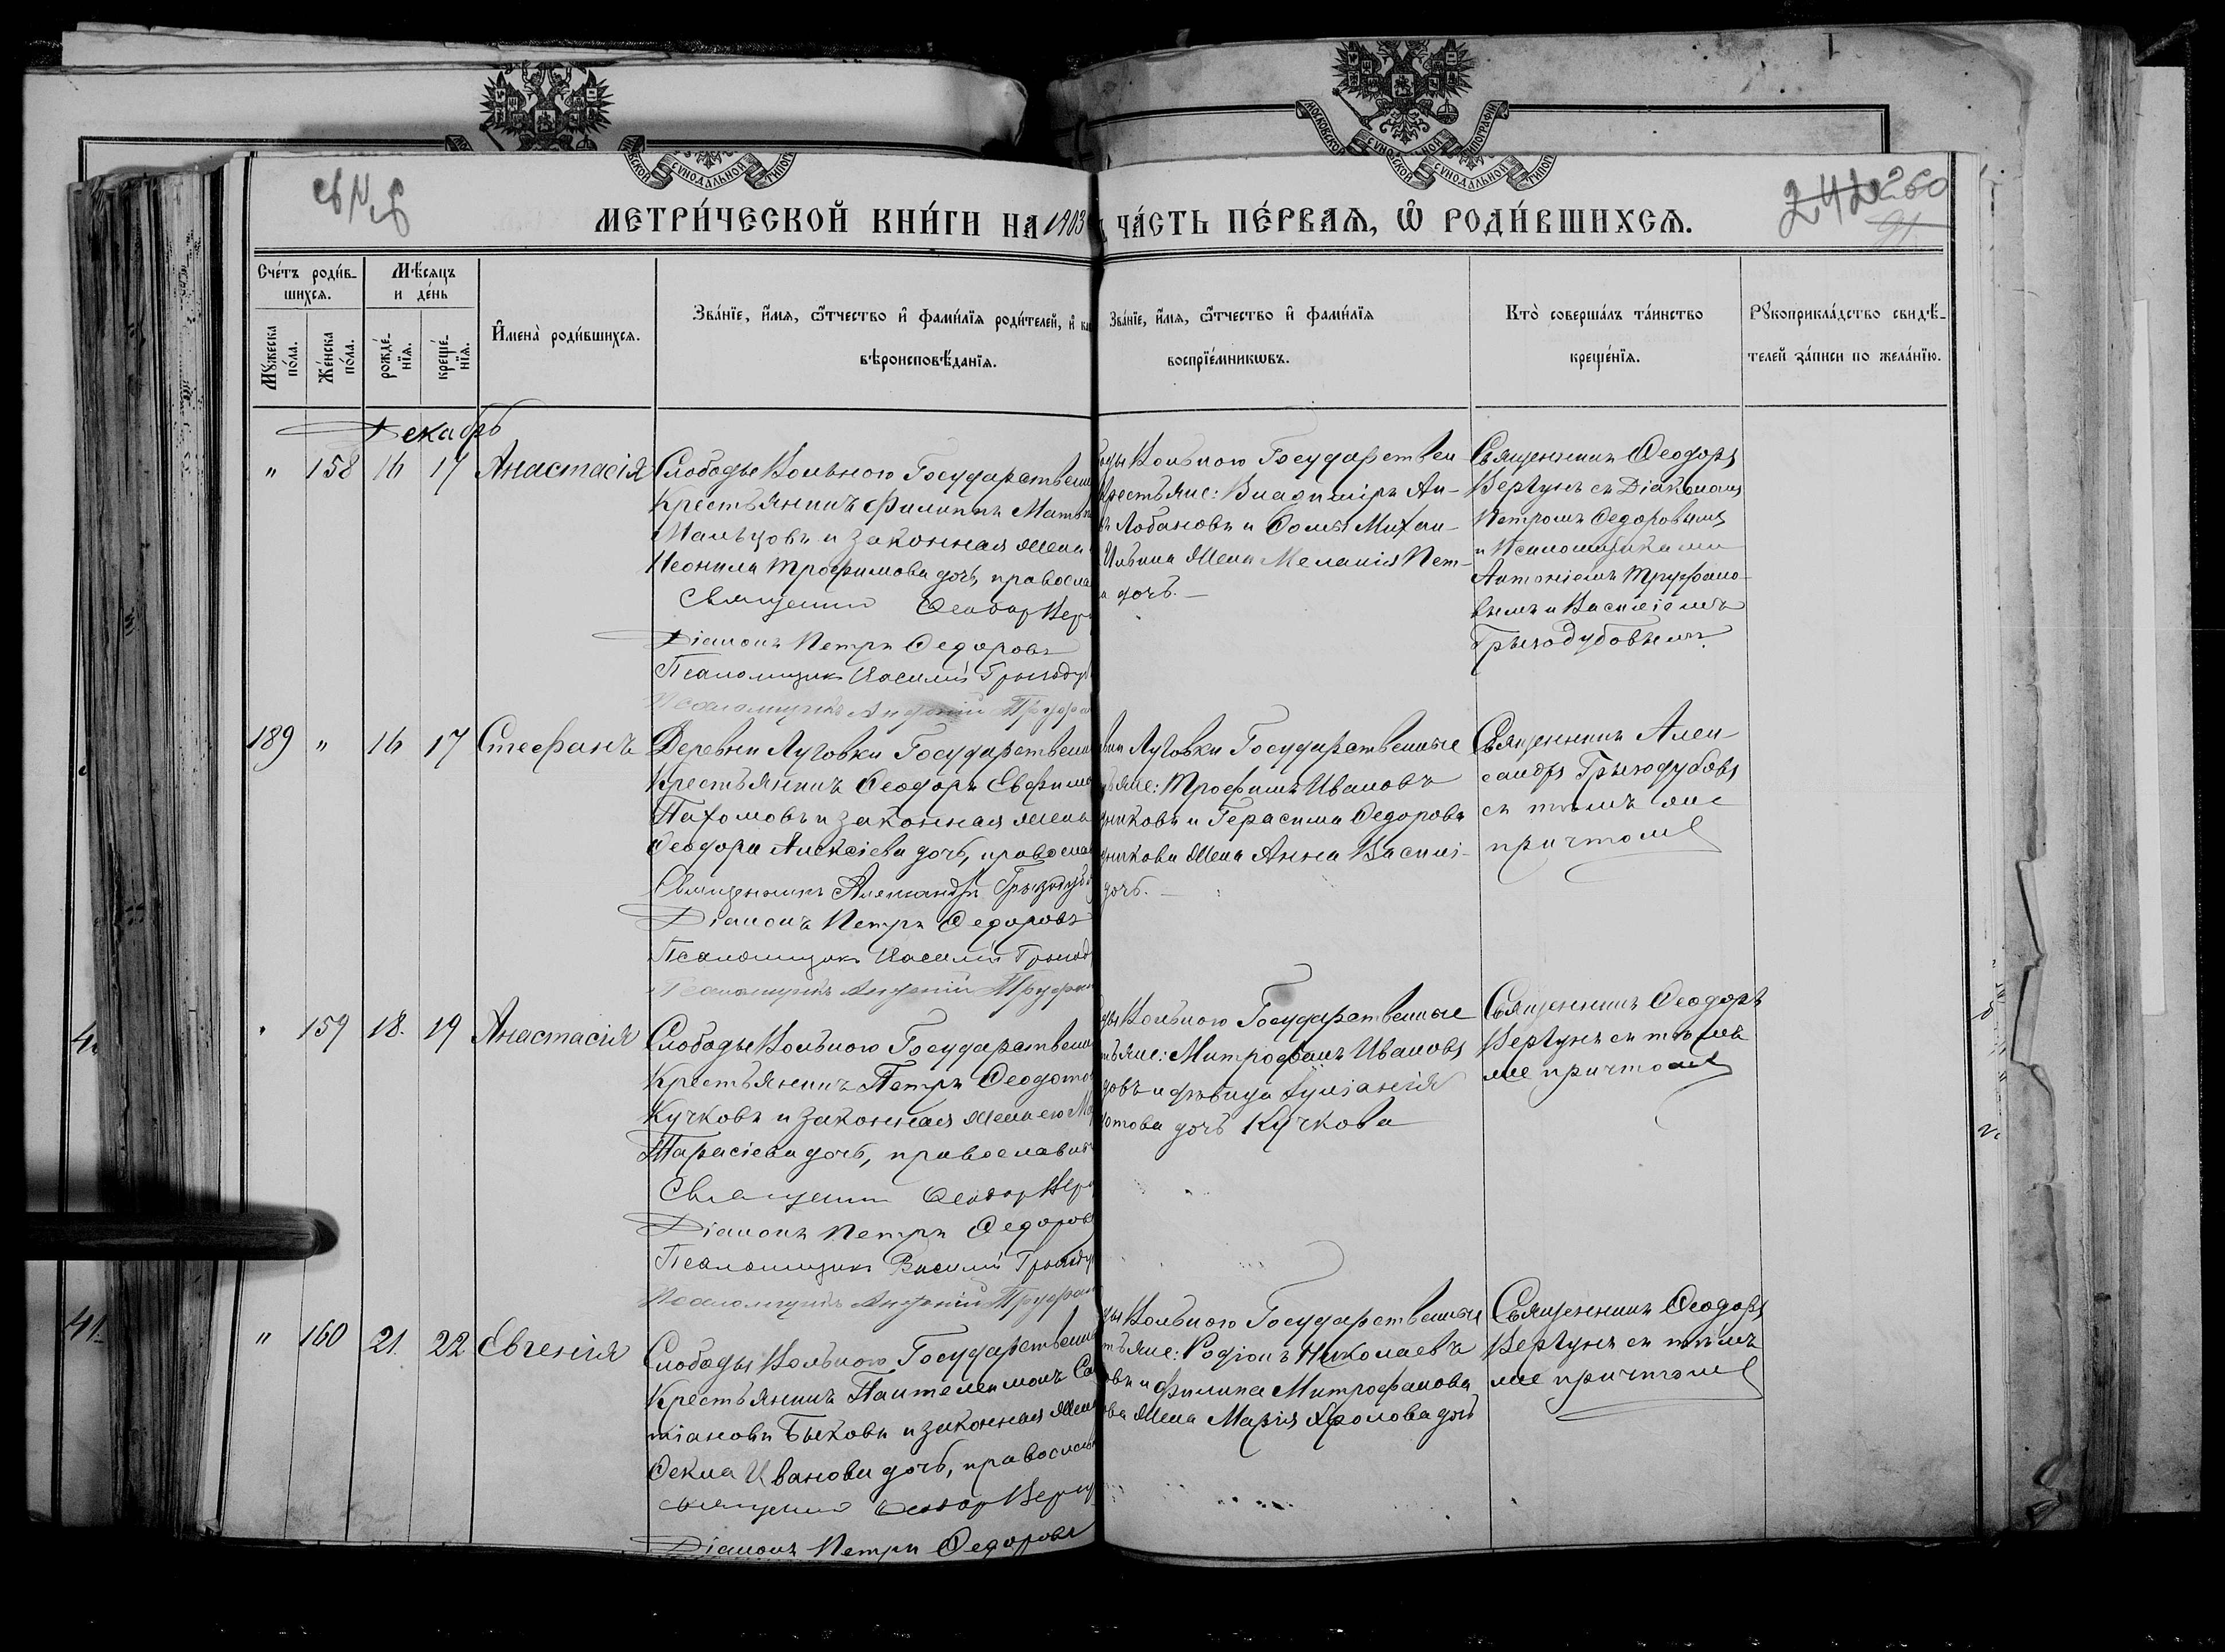 МЕТРИ́ЧЕСКОЙ КНИ́ГИ НА 1903
ЧА́СТЬ ПЕ́РВАѦ, Ѽ РОДИ́ВШИХСѦ.
242 260
91
Сче́тъ роди́в-
шихсѧ.
Мꙋ́жеска
по́ла.
Же́нска
по́ла.
Мѣ́сѧцъ
и де́нь
рожде́-
нїѧ.
креще́-
нїѧ.
И҆мена̀ роди́вшихсѧ.
Зва́нїе, и҆́мѧ, ѻ҆́тчество и҆ фами́лїѧ роди́телей, и҆
вѣроисповѣ́данїѧ.
Зва́нїе, и҆́мѧ, ѻ҆́тчество и҆ фами́лїѧ
воспрїе́мникѡвъ.
Кто̀ соверша́лъ та́инство
креще́нїѧ.
Рꙋкоприкла́дство свидѣ́-
телей за́писи по жела́нїю.
Декабрь
" 158 16 17 Анастасія
Слободы Вольнаго Государствен
Крестьянинъ Филиппъ Матв
Мальцовъ и законная жена
Неонила Трофимова дочь, правосла
Священникъ Феодор Вер
Діаконъ Петръ Федоровъ
Псаломщикъ Василий Грызоду
Псаломщикъ Антоній Труфа
ды Вольнаго Государствен
Крестьяне: Владиміръ Ан-
Лобановъ и Фомы Михаи-
Ильина жена Меланія Пет-
дочь. —
Священникъ Феодоръ
Вергунъ съ Діакономъ
Петромъ Федоровымъ
и Псаломщиками
Антоніемъ Труфано-
вымъ и Василіемъ
Грызодубовымъ.
189 " 16 17 Стефанъ
Деревни Луговки Государствен
Крестьянинъ Феодоръ Евфимо
Пахомовъ и законная жена
Феодора Алексіева дочь, правосла
Священникъ Александръ Грызодуб
Діаконъ Петръ Федоровъ
Псаломщикъ Василий Грызод
Псаломщикъ Антоній Труфан
Луговки Государственные
яне: Трофимъ Ивановъ
никовъ и Герасима Федорова
никова жена Анна Василі-
дочь. —
Священникъ Алек
сандръ Грызодубовъ
съ тѣмъ же
причтомъ
" 159 18. 19 Анастасія
Слободы Вольнаго Государствен
Крестьянинъ Петръ Феодото
Кучковъ и законная жена его Ма
Тарасіева дочь, православны
Священникъ Феодор Вер
Діаконъ Петръ Федоровъ
Псаломщикъ Василий Грызоду
Псаломщикъ Антоній Труфан
ды Вольнаго Государственные
тьяне: Митрофанъ Ивановъ
ковъ и дѣвица Іуліанія
отова дочь Кучкова
Священникъ Феодоръ
Вергунъ съ тѣмъ
же причтомъ
" 160 21. 22 Евгенія
Слободы Вольнаго Государствен
Крестьянинъ Пантелеимонъ Са
тіановъ Быковъ и законная жена
Фекла Иванова дочь, православ
священникъ Феодор Вергу
Діаконъ Петръ Федоровъ
ды Вольнаго Государственные
тьяне: Родіонъ Николаевъ
овъ и Филипа Митрофанова
ова жена Марія Фролова дочь
Священникъ Феодоръ
Вергунъ съ тѣмъ
же причтомъ